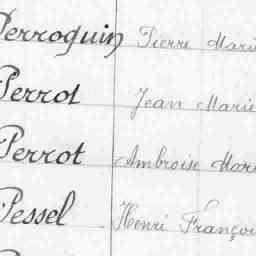 Perroquin Pierre Marie
Perrot Jean Marie
Perrot Ambroise Mari
Pessel Henri Françoi